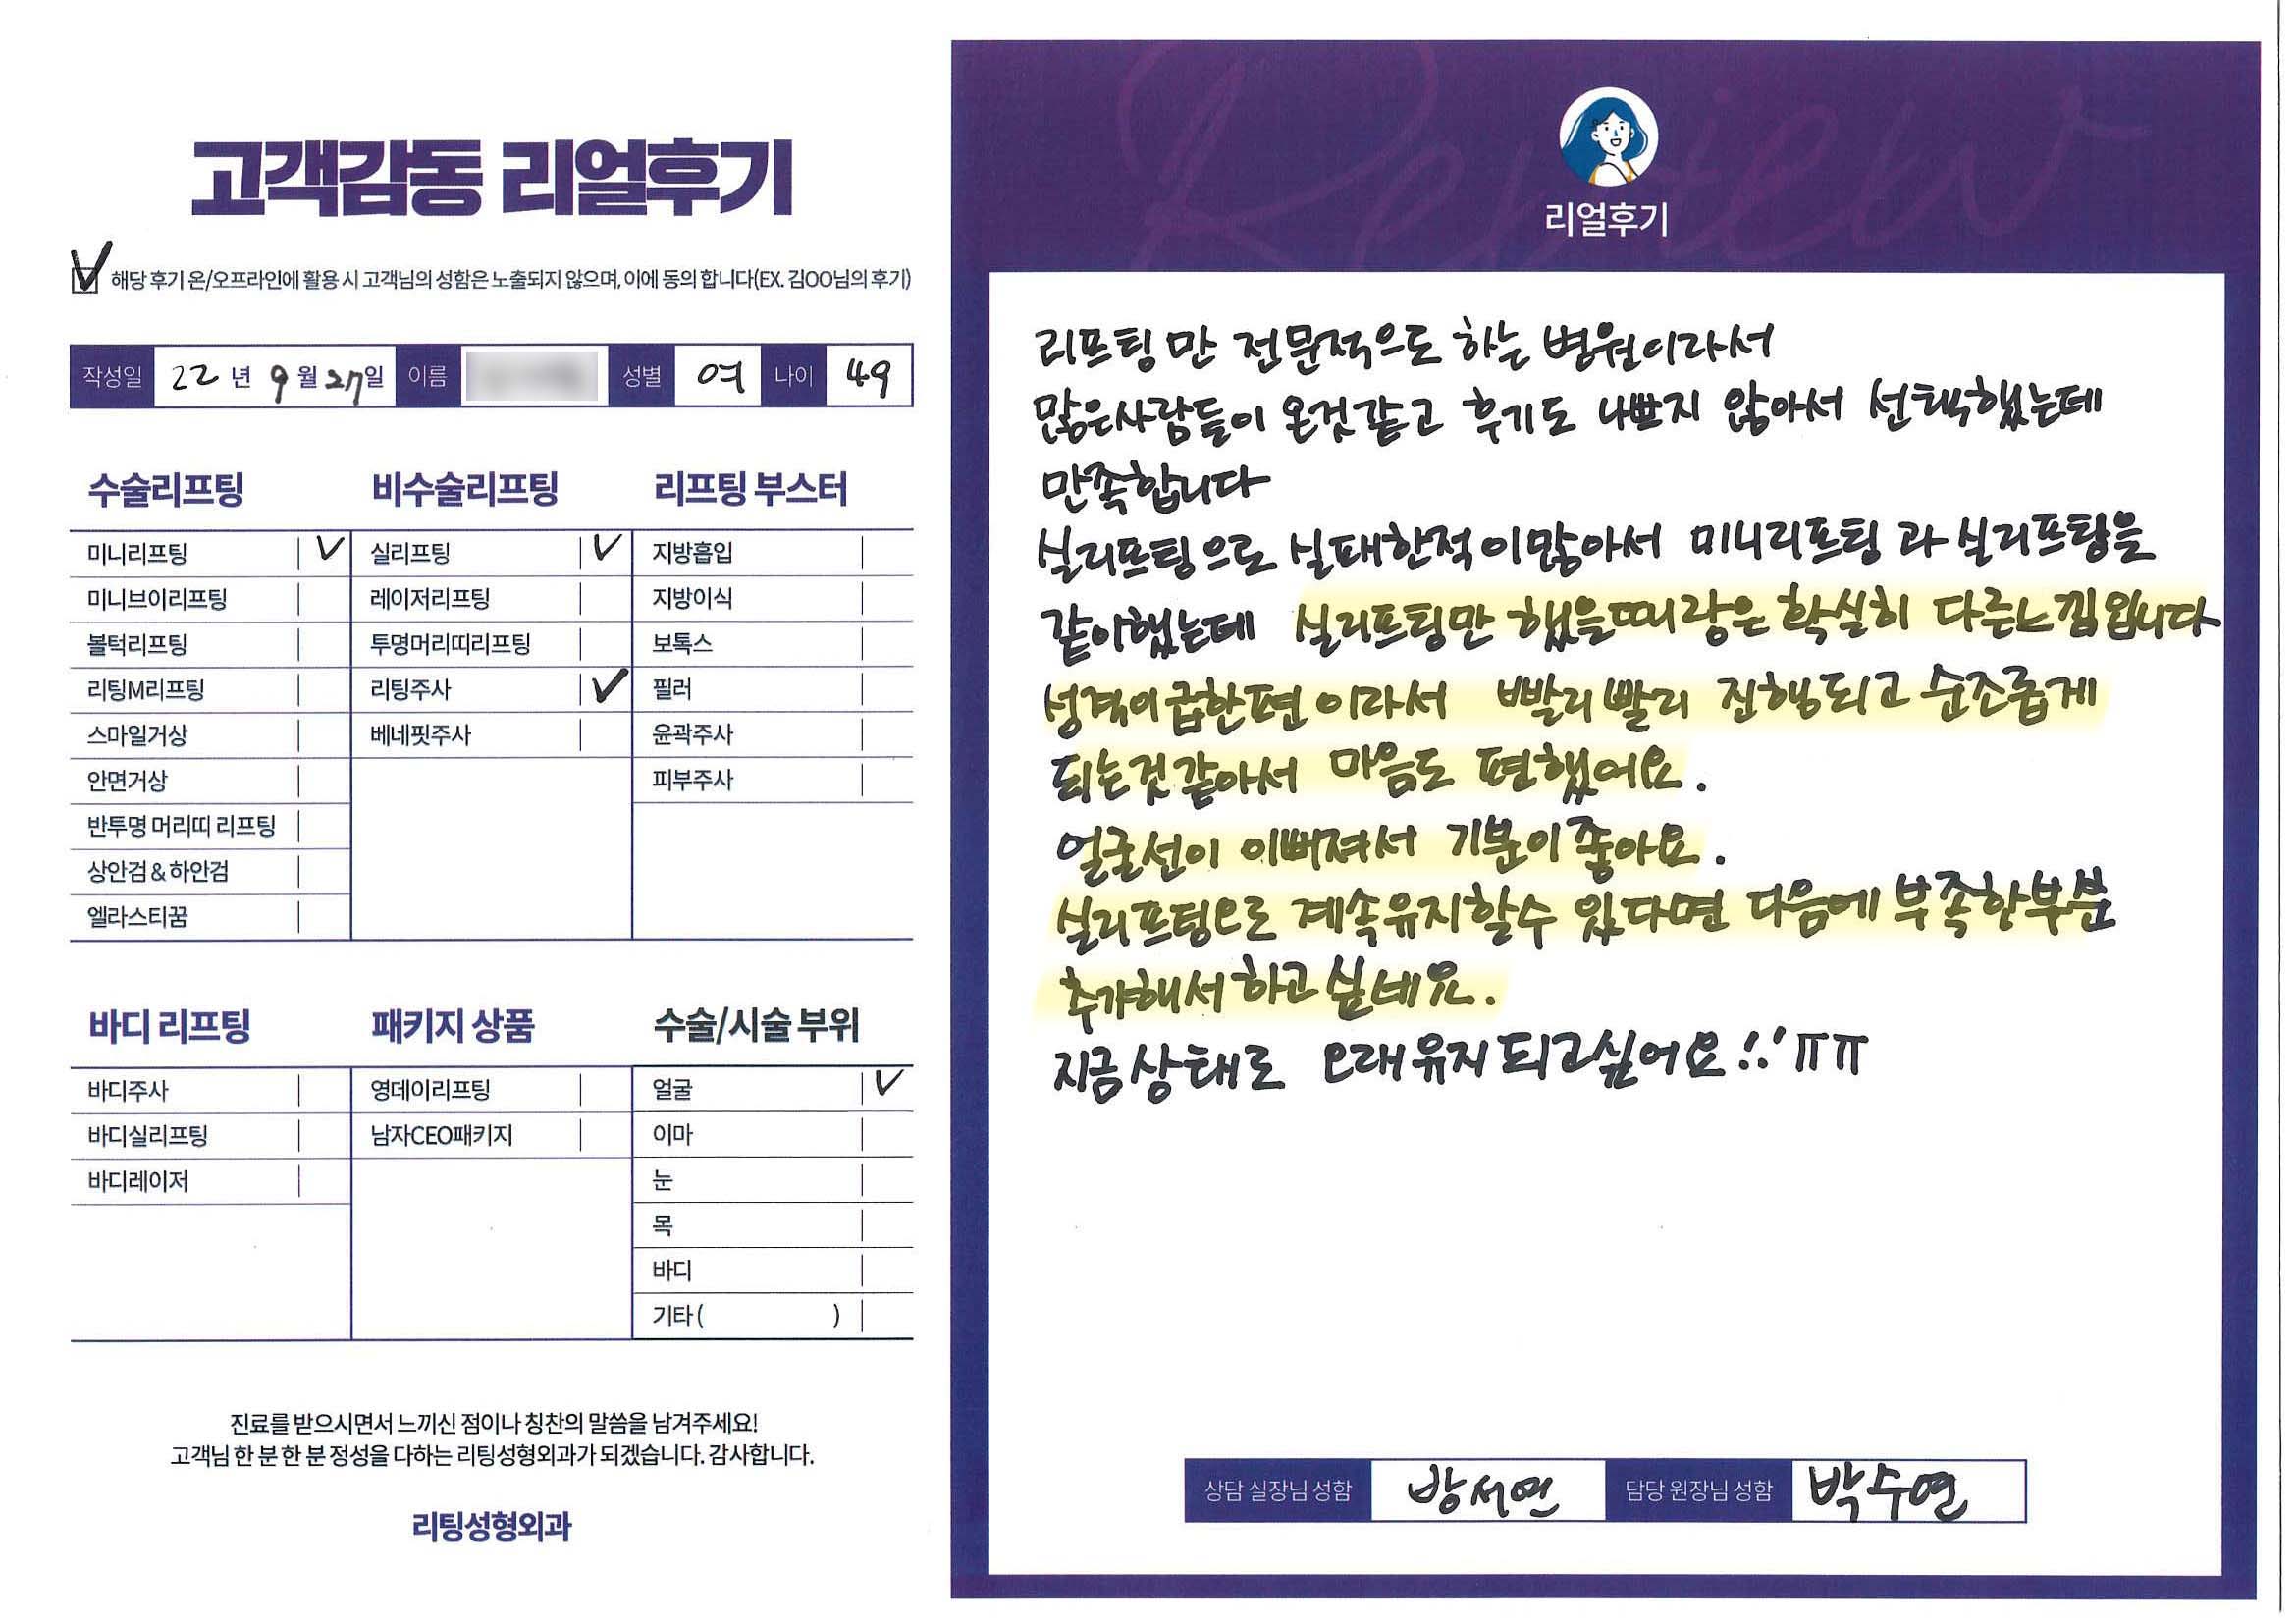 고객감동 리얼후기
해당 후기 온/오프라인에 활용 시 고객님의 성함은 노출되지 않으며, 이에 동의 합니다(EX. 김OO님의 후기)
작성일 22 년 9 월 27일 이름 성별 여 나이 49
수술리프팅 비수술리프팅 리프팅 부스터
미니리프팅 실리프팅 지방흡입
미니브이리프팅 레이저리프팅 지방이식
볼턱리프팅 투명머리띠리프팅 보톡스
리팅M리프팅 리팅주사 필러
스마일거상 베네핏주사 윤곽주사
안면거상 피부주사
반투명 머리띠 리프팅
상안검 & 하안검
엘라스티꿈
바디 리프팅 패키지 상품 수술/시술 부위
바디주사 영데이리프팅 얼굴
바디실리프팅 남자CEO패키지 이마
바디레이저 눈
목
바디
기타 ( )
진료를 받으시면서 느끼신 점이나 칭찬의 말씀을 남겨주세요!
고객님 한 분 한 분 정성을 다하는 리팅성형외과가 되겠습니다. 감사합니다.
리팅성형외과
Review
리얼후기
리프팅만 전문적으로 하는 병원이라서
많은사람들이 온것같고 후기도 나쁘지 않아서 선택했는데
만족합니다
실리프팅으로 실패한적이많아서 미니리프팅과 실리프팅을
같이했는데 실리프팅만 했을때랑은 확실히 다른느낌입니다
성격이급한편이라서 빨리빨리 진행되고 순조롭게
되는것같아서 마음도 편했어요.
얼굴선이 이뻐져서 기분이좋아요.
실리프팅으로 계속유지할수 있다면 다음에 부족한부분
추가해서하고싶네요.
지금상태로 오래유지되고싶어요!! ㅠㅠ
상담 실장님 성함 방서연 담당 원장님 성함 박수연